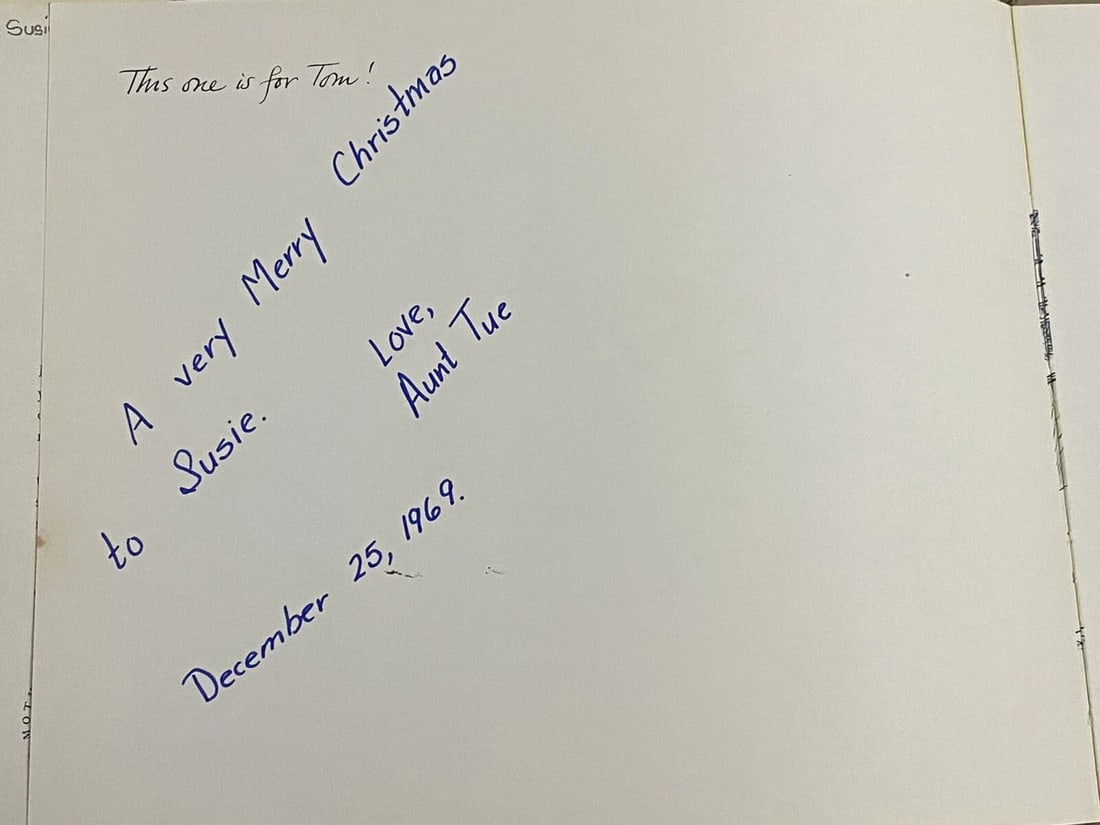 Susi
This one is for Tom!
A very Merry Christmas
to Susie.
Love,
Aunt Tue
December 25, 1969.